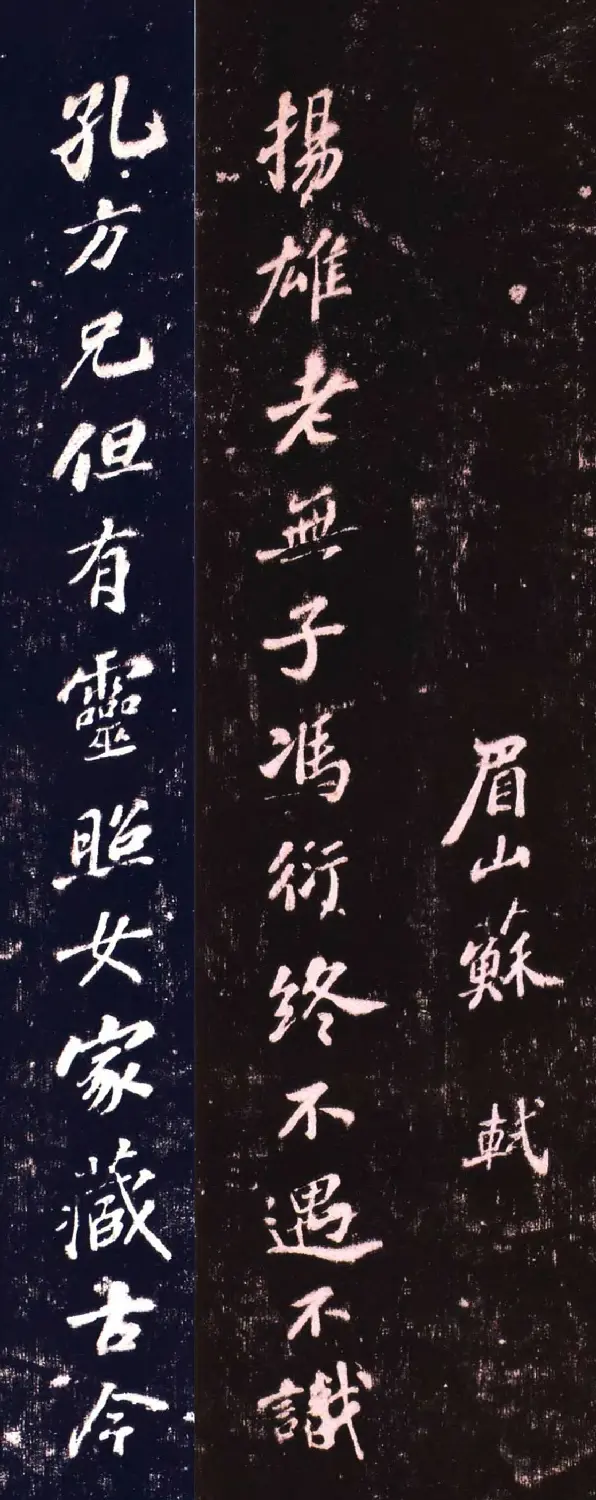 眉山蘇軾
揚雄老無子馮衍終不遇不識
孔方兄但有靈照女家藏古今